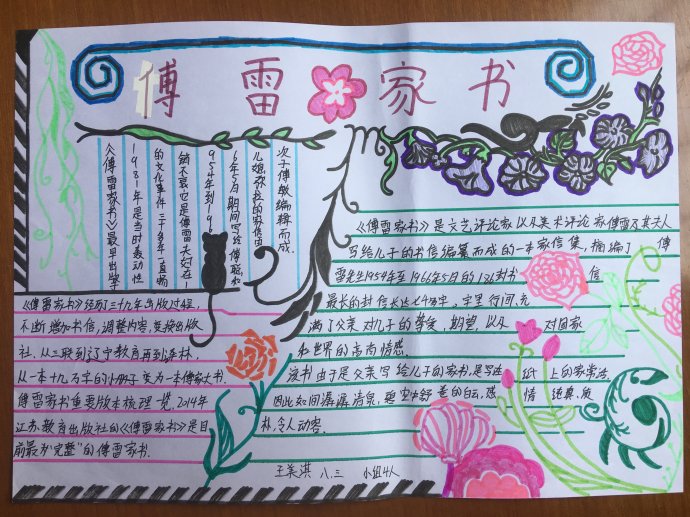 傅雷家书
《傅雷家书》最早出版于
1981年是当时轰动性
的文化事件三十多年一直畅
销不衰它是傅雷夫妇在1
954年到196
6年5月期间写给傅聪和
儿媳弥拉的家信由
次子傅敏编辑而成
《傅雷家书》经历三十九年出版过程,
不断增加书信,调整内容,变换出版
社,从三联到辽宁教育再到译林,
从一本十几万字的小册子变为一本傅家大书.
傅雷家书重要版本梳理一览,2014年
江苏教育出版社的《傅雷家书》是目
前最为"完整"的傅雷家书.
《傅雷家书》是文艺评论家以及美术评论家傅雷及其夫人
写给儿子的书信编纂而成的一本家信集,摘编了傅
雷先生1954年至1966年5月的186封书信
最长的封信长达七千多字,字里行间,充
满了父亲对儿子的挚爱,期望,以及对国家
和世界的高尚情感.
该书由于是父亲写给儿子的家书,是写在纸上的家常话
因此如同潺潺清泉,碧空中舒卷的白云,感情纯真,质
朴,令人动容.
王美淇 八.三 小组4人